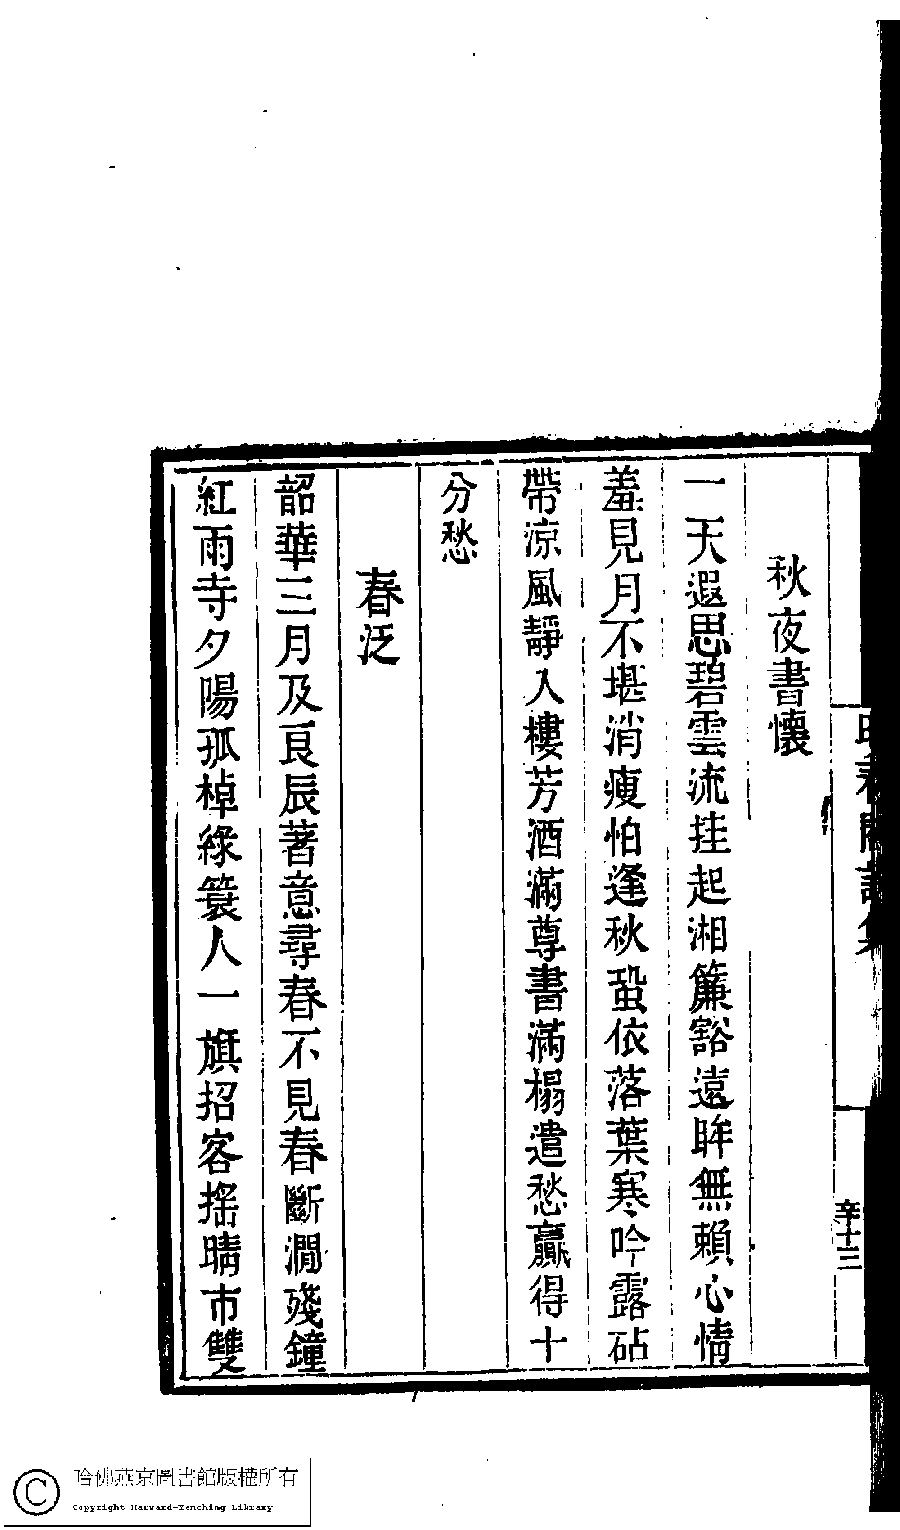 秋夜書懷
一天遐思碧雲流挂起湘簾豁遠眸無賴心情
羞見月不堪消瘦怕逢秋蛩依落葉寒吟露砧
帶涼風靜入樓芳酒滿尊書滿榻遣愁贏得十
分愁
春泛
韶華三月及良辰著意尋春不見春斷澗殘鐘
紅雨寺夕陽孤棹綠簑人一旗招客搖晴市雙
辛十三
哈佛燕京圖書館版權所有
Copyright Harvard-Yenching Library